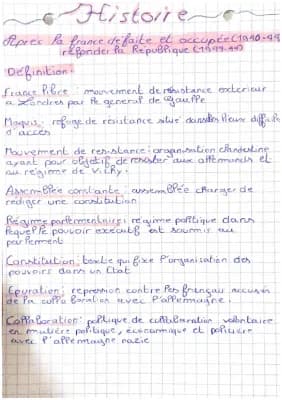 Histoire
Après la france defaite et occupée (1940-44)
refonder la République (1944-47)
Definition:
France libre: mouvement de resistance exterieur
a Londres par le general de Gaulle
Maquis: refuge de résistance situé dans des lieux difficile
d'accès
Mouvement de resistance: organisation clandestine
ayant pour objectif de resister aux allemands et
au regime de Vichy.
Assemblée constante: assemblée charger de
rédiger une constitution
Régime parlementaire: regime politique dans
lequel le pouvoir executif est soumis au
parlement
Constitution: texte qui fixe l'organisation des
pouvoirs dans un Etat
Epuration: repression contre les français accusés
de la collaboration avec l'allemagne.
Collaboration: politique de collaboration volontaire
en matière politique, économique et policière
avec l'allemagne nazie